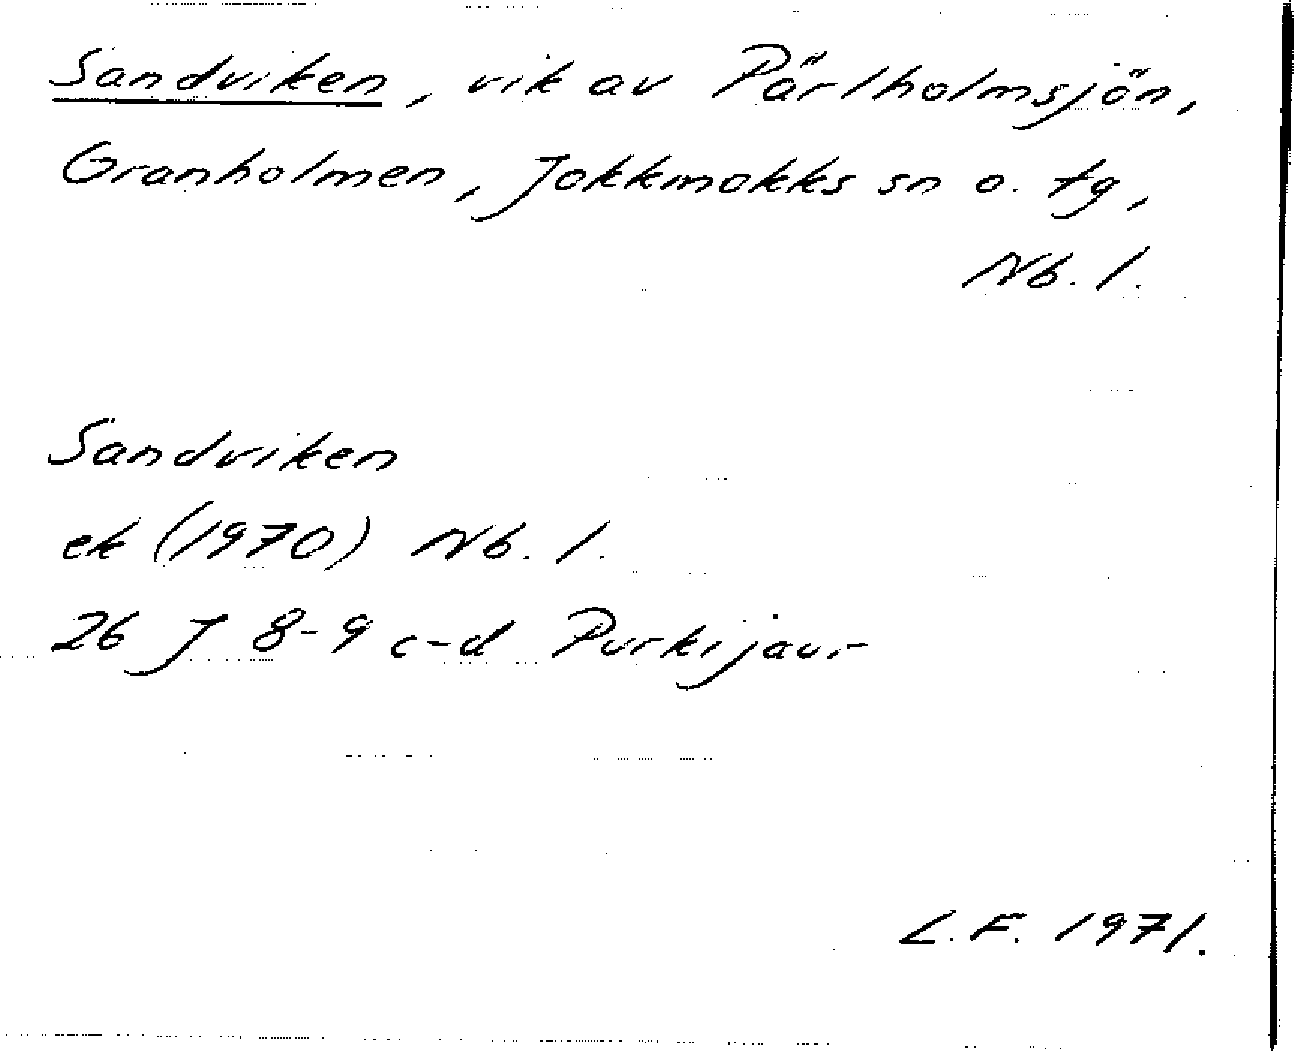 Sandviken, vik av Pärlholmsjön,
Granholmen, Jokkmokks sn o. tg,
Nb. l.
Sandviken
ek (1970) Nb. l.
26 J 8-9 c-d Purkijaur
L.F. 1971.